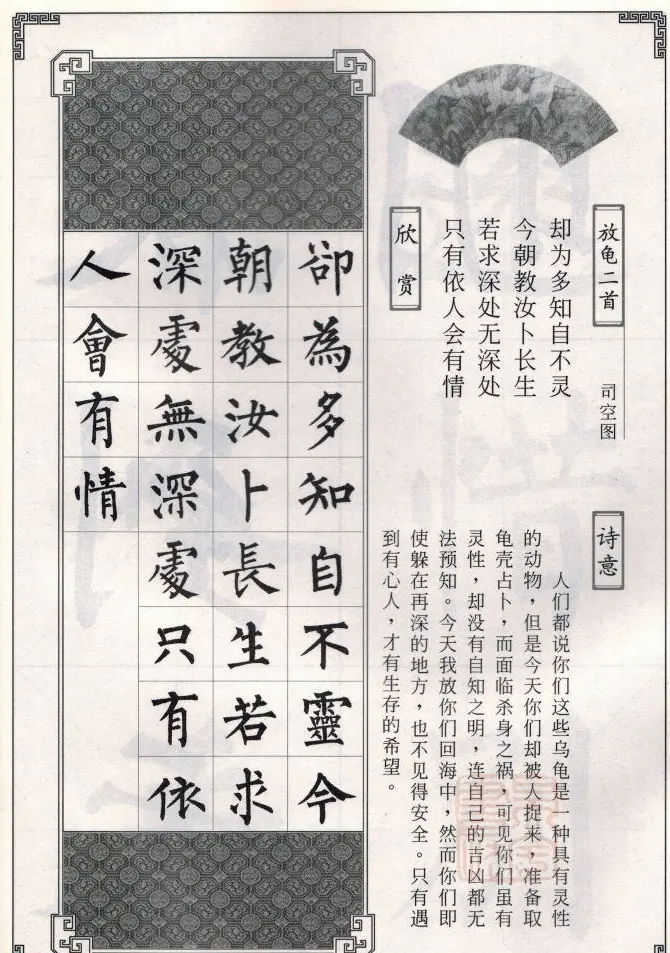 放龟二首
司空图
却为多知自不灵
今朝教汝卜长生
若求深处无深处
只有依人会有情
诗意
人们都说你们这些乌龟是一种具有灵性
的动物，但是今天你们却被人捉来，准备取
龟壳占卜，而面临杀身之祸，可见你们虽有
灵性，却没有自知之明，连自己的吉凶都无
法预知。今天我放你们回海中，然而你们即
使躲在再深的地方，也不见得安全。只有遇
到有心人，才有生存的希望。
欣赏
卻為多知自不靈今
朝教汝卜長生若求
深處無深處只有依
人會有情